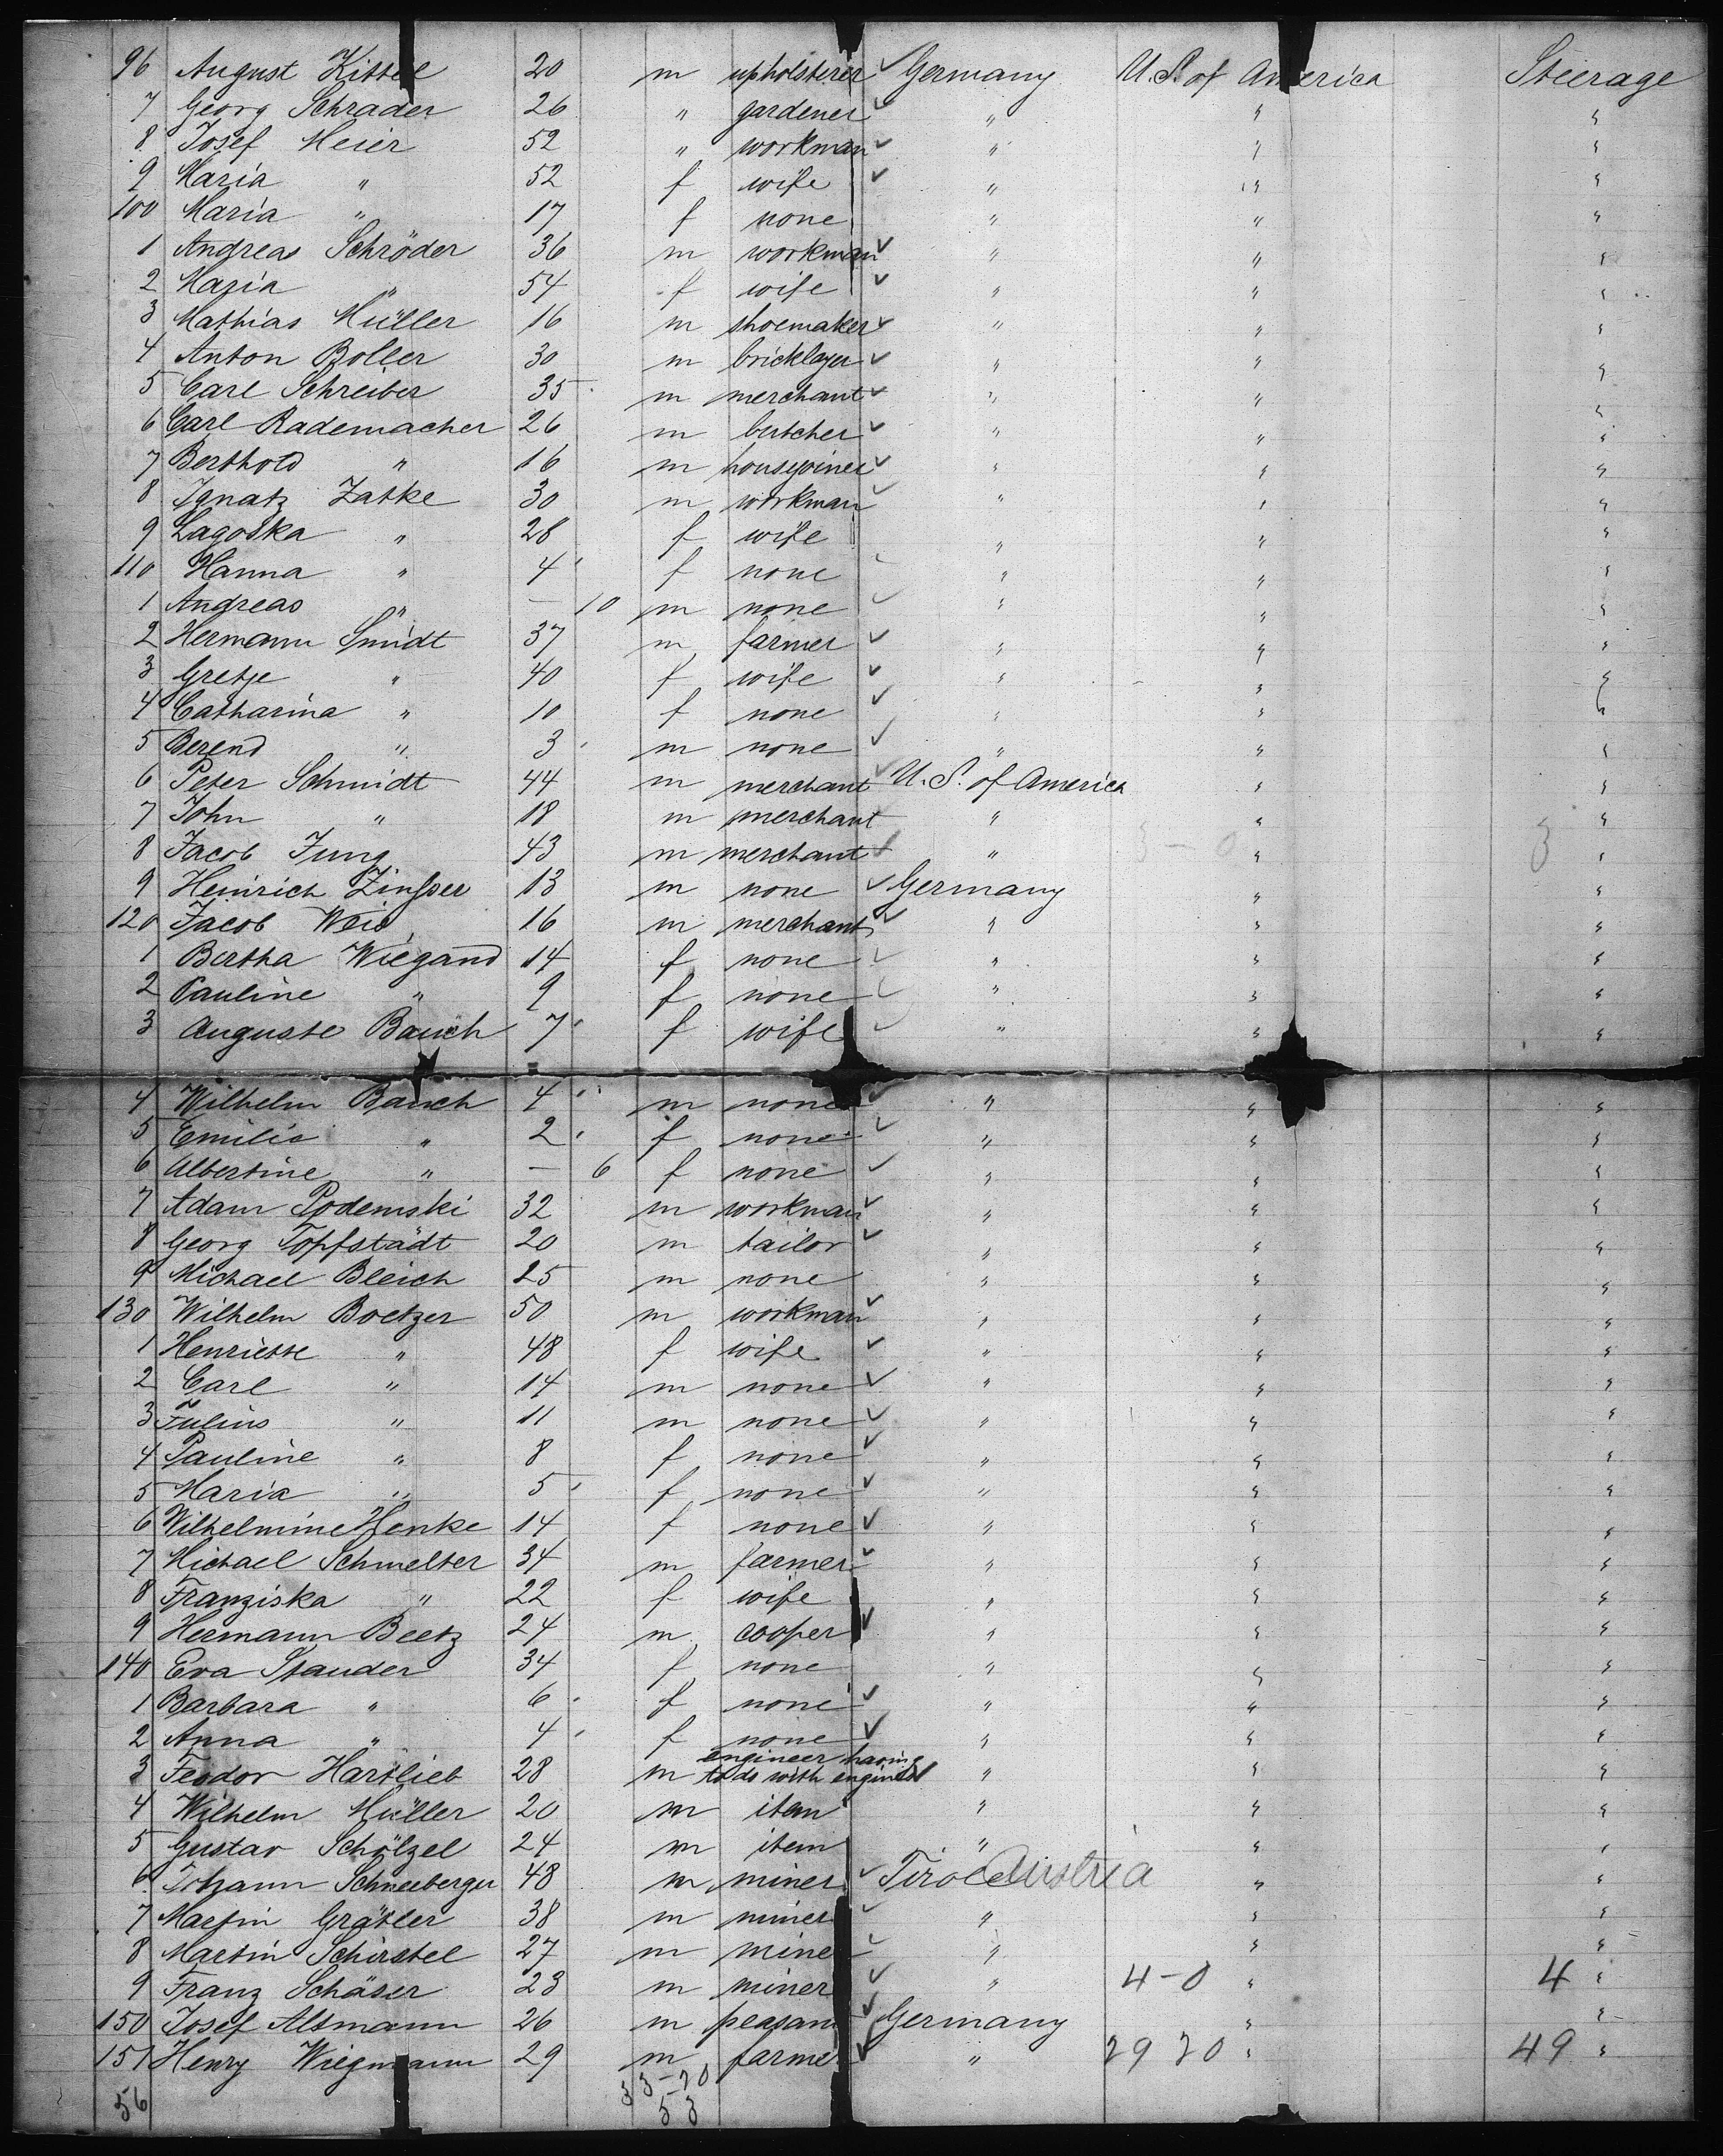 96 August Kittel 20 m upholsterer ✓ Germany U.S. of America Steerage
7 Georg Schrader 26 " gardener ✓ " " "
8 Josef Meier 52 " workman ✓ " " "
9 Maria " 52 f wife ✓ " " "
100 Maria " 17 f none " " "
1 Andreas Schröder 36 m workman ✓ " " "
2 Maria " 54 f wife ✓ " " "
3 Mathias Müller 16 m shoemaker ✓ " " "
4 Anton Boller 30 m bricklayer ✓ " " "
5 Carl Schreiber 35 m merchant ✓ " " "
6 Carl Rademacher 26 m butcher ✓ " " "
7 Berthold " 16 m housejoiner ✓ " " "
8 Ignatz Zatke 30 m workman ✓ " " "
9 Lagoska " 28 f wife " " "
110 Hanna " 4 f none ✓ " " "
1 Andreas " — 10 m none ✓ " " "
2 Hermann Smidt 37 m farmer ✓ " " "
3 Gretje " 40 f wife ✓ " " "
4 Catharina " 10 f none ✓ " " "
5 Berend " 3 m none ✓ " " "
6 Peter Schmidt 44 m merchant ✓ U.S. of America " "
7 John " 18 m merchant " " "
8 Jacob Jung 43 m merchant ✓ " 3-0 " 3 "
9 Heinrich Zinsser 13 m none ✓ Germany " "
120 Jacob Weis 16 m merchant ✓ " " "
1 Bertha Wiegand 14 f none ✓ " " "
2 Pauline " 9 f none ✓ " " "
3 Auguste Bauch 7 f wife ✓ " " "
4 Wilhelm Bauch 4 m none ✓ " " "
5 Emilie " 2 f none ✓ " " "
6 Albertine " — 6 f none ✓ " " "
7 Adam Podemski 32 m workman ✓ " " "
8 Georg Topfstädt 20 m tailor ✓ " " "
9 Michael Bleich 25 m none " " "
130 Wilhelm Boetzer 50 m workman ✓ " " "
1 Henriette " 48 f wife ✓ " " "
2 Carl " 14 m none ✓ " " "
3 Julius " 11 m none ✓ " " "
4 Pauline " 8 f none ✓ " " "
5 Maria " 5 f none ✓ " " "
6 Wilhelmine Henke 14 f none ✓ " " "
7 Michael Schmelter 34 m farmer ✓ " " "
8 Franziska " 22 f wife " " "
9 Hermann Beetz 24 m cooper ✓ " " "
140 Eva Stauder 34 f none " " "
1 Barbara " 6 f none ✓ " " "
2 Anna " 4 f none ✓ " " "
3 Feodor Hartlieb 28 m engineer having to do with engines ✓ " " "
4 Wilhelm Müller 20 m item " " "
5 Gustav Schölzel 24 m item " " "
6 Johann Schneeberger 48 m miner ✓ Tirol Austria " "
7 Martin Grätler 38 m miner ✓ " " "
8 Martin Schirstel 27 m miner ✓ " " "
9 Franz Schäser 23 m miner ✓ " 4-0 " 4 "
150 Josef Altmann 26 m peasant ✓ Germany " "
151 Henry Wiegmann 29 m farmer ✓ " 29 20 " 49 "
56 33-20
53